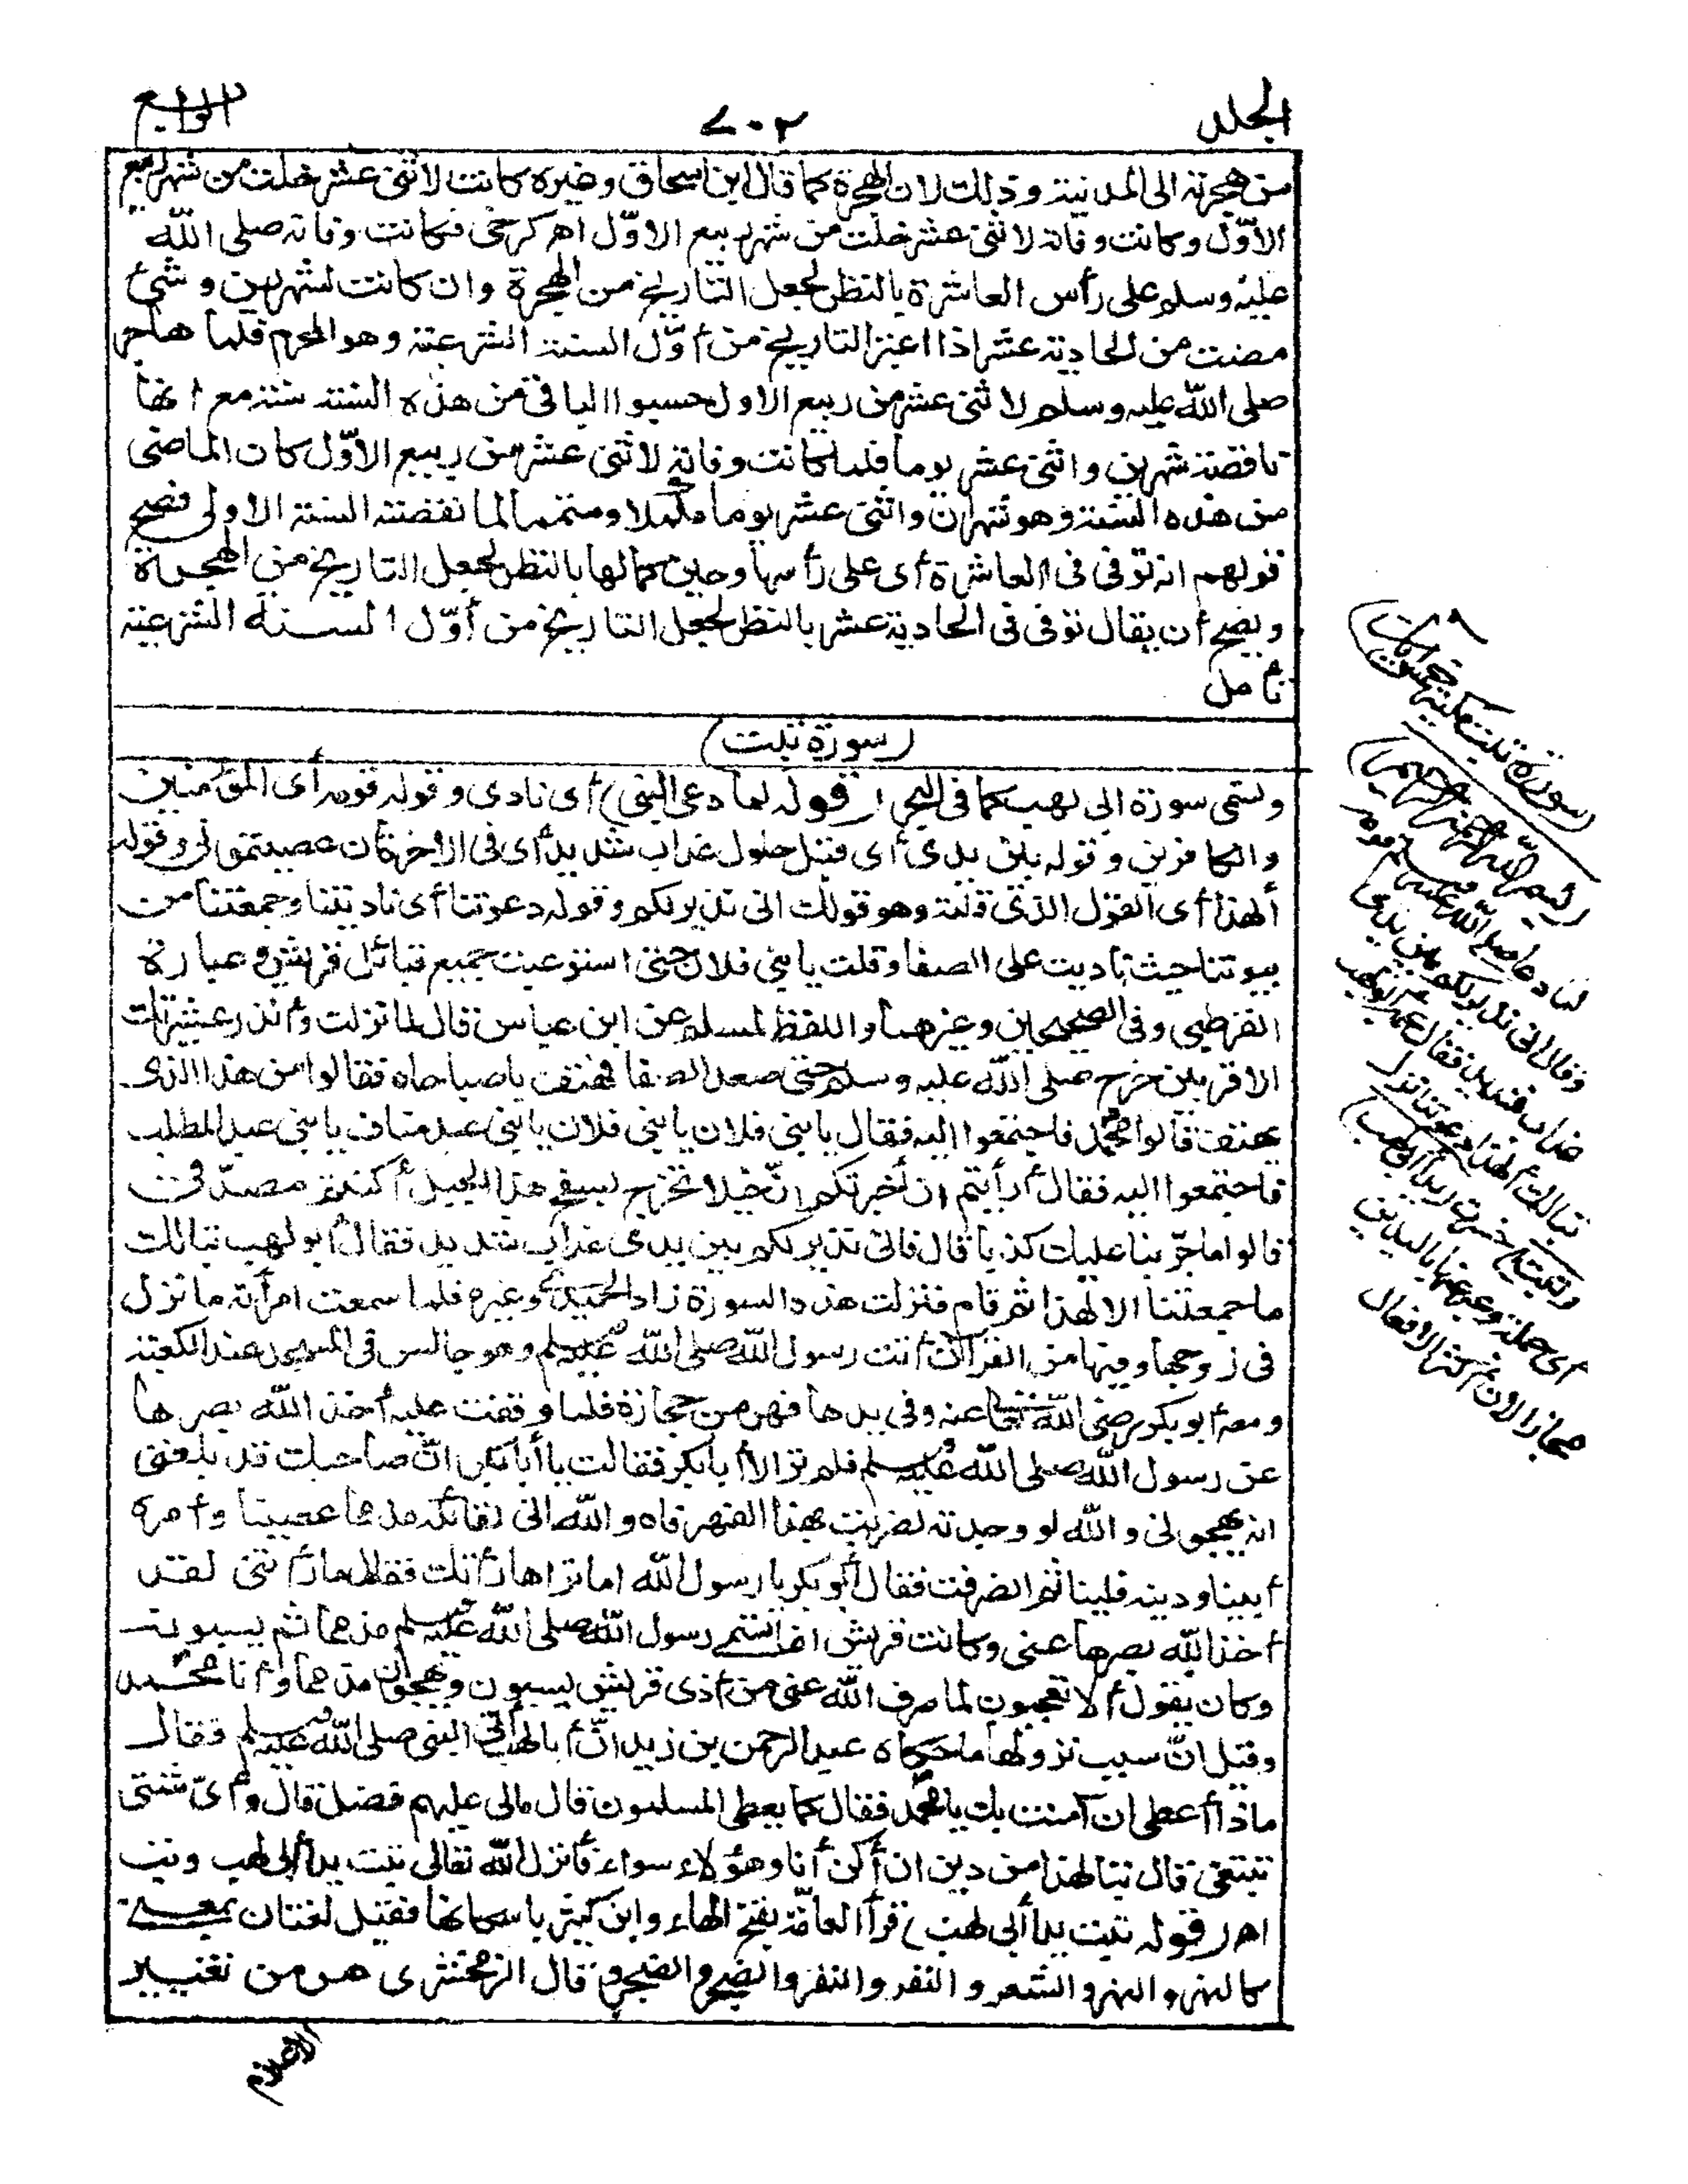 الجلد
٧٠٢
الرابع
من هجرته الى المدينة وذلك لان الهجرة كما قال ابن اسحاق وغيره كانت لاثنى عشر خلت من شهر ربيع
الاوّل وكانت وفاته لاثنى عشر خلت من شهر ربيع الاوّل اهر كرخى فكانت وفاته صلى الله
عليه وسلم على رأس العاشرة بالنظر لجعل التاريخ من الهجرة وان كانت لشهرين وشئ
مضت من الحادية عشر اذا اعتبر التاريخ من أوّل السنة الشرعية وهو المحرم فلما هاجر
صلى الله عليه وسلم لاثنى عشر من ربيع الاول حسبوا الباقى من هذه السنة سنة مع أنها
ناقصة شهرين واثنى عشر يوما فلما كانت وفاته لاثنى عشر من ربيع الأوّل كان الماضى
من هذه السنة وهو شهران واثنى عشر يوما مكملا ومتمما لما نقصته السنة الاولى فصح
قولهم انه توفى فى العاشرة أى على رأسها وحين كمالها بالنظر لجعل التاريخ من الهجرة
ويصح أن يقال توفى فى الحادية عشر بالنظر لجعل التاريخ من أوّل السنة الشرعية
تأمل
(سورة تبت)
وتسمى سورة ابى لهب كما فى البحر (قوله لما دعى النبى) أى نادى وقوله قومه أى المؤمنين
والكافرين وقوله بين يدى أى قبل حلول عذاب شديد أى فى الاخرة أن عصيتمونى وقوله
ألهذا أى القول الذى قلته وهو قولك انى نذير لكم وقوله دعوتنا أى ناديتنا وجمعتنا من
بيوتنا حيث ناديت على الصفا وقلت يا بنى فلان حتى استوعبت جميع قبائل قريش وعبارة
القرطبى وفى الصحيحين وغيرهما واللفظ لمسلم عن ابن عباس قال لما نزلت وأنذر عشيرتك
الاقربين خرج صلى الله عليه وسلم حتى صعد الصفا فهتف يا صباحاه فقالوا من هذا الذى
يهتف قالوا محمد فاجتمعوا اليه فقال يا بنى فلان يا بنى فلان يا بنى عبد مناف يا بنى عبد المطلب
فاجتمعوا اليه فقال أرأيتم ان أخبرتكم انّ خيلا تخرج بسفح هذا الجبل أكنتم مصدّقى
قالوا ما جرّبنا عليك كذبا قال فانى نذير لكم بين يدى عذاب شديد فقال أبو لهب تبا لك
ما جمعتنا الا لهذا ثم قام فنزلت هذه السورة زاد الحميدى وغيره فلما سمعت امرأته ما نزل
فى زوجها وفيها من القرآن أتت رسول الله صلى الله عليه وسلم وهو جالس فى المسجد عند الكعبة
ومعه أبو بكر رضى الله تعالى عنه وفى يدها فهر من حجارة فلما وقفت عليه أخذ الله بصرها
عن رسول الله صلى الله عليه وسلم فلم تر الا أبا بكر فقالت يا أبا بكر انّ صاحبك قد بلغنى
انه يهجونى والله لو وجدته لضربت بهذا الفهر فاه والله انى لقائلة مذمما عصينا وأمره
أبينا ودينه قلينا ثم انصرفت فقال أبو بكر يا رسول الله اما تراها رأتك فقال ما رأتنى لقد
أخذ الله بصرها عنى وكانت قريش انما تسمى رسول الله صلى الله عليه وسلم مذمما ثم يسبونه
وكان يقول ألا تعجبون لما صرف الله عنى من أذى قريش يسبون ويهجون مذمما وأنا محمد
وقيل انّ سبب نزولها ما حكاه عبد الرحمن بن زيد انّ أبا لهب أتى النبى صلى الله عليه وسلم فقال
ماذا أعطى ان آمنت بك يا محمد فقال كما يعطى المسلمون قال مالى عليهم فضل قال وأىّ شئ
تبتغى قال تبا لهذا من دين ان أكن أنا وهؤلاء سواء فأنزل الله تعالى تبت يدا أبى لهب وتب
اهر (قوله تبت يدا أبى لهب) قرأ العامّة بفتح الهاء وابن كثير باسكانها فقيل لغتان بمعنى
كالنهر والنهر والشعر والشعر والنفر والنفر والضجر والضجر وقال الزمخشرى هو من تغيير
الاعلام
سورة تبت مكية خمس آيات
بسم الله الرحمن الرحيم
لما دعا صلى الله عليه وسلم قومه
وقال انى نذير لكم بين يدى
عذاب شديد فقال عمه أبو لهب
تبا لك ألهذا دعوتنا نزل
(تبت) خسرت (يدا أبى لهب)
أى جملته وعبر عنها باليدين
مجازا لان أكثر الافعال